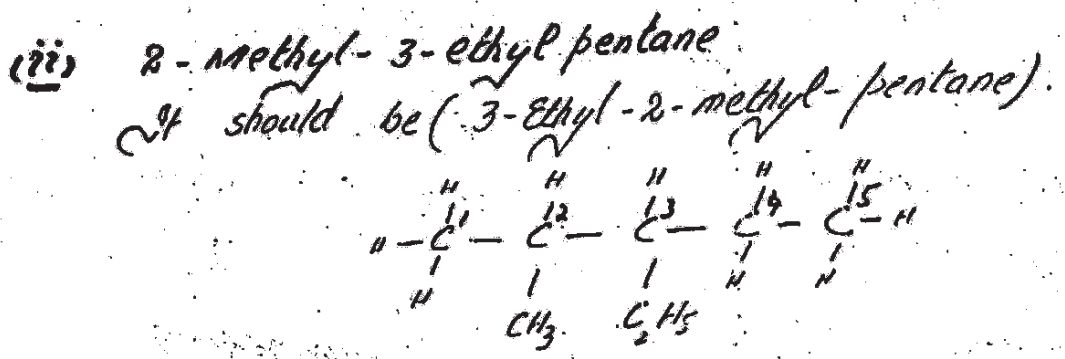 (ii) 2-Methyl-3-ethyl pentane
It should be (3-Ethyl-2-methyl-pentane).
H H H H H
H-C1-C2-C3-C4-C5-H
H CH3 C2H5 H H